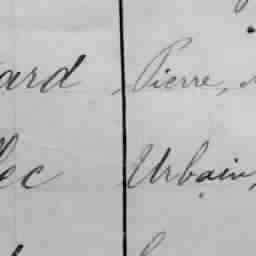 ard Pierre,
lec Urbain,